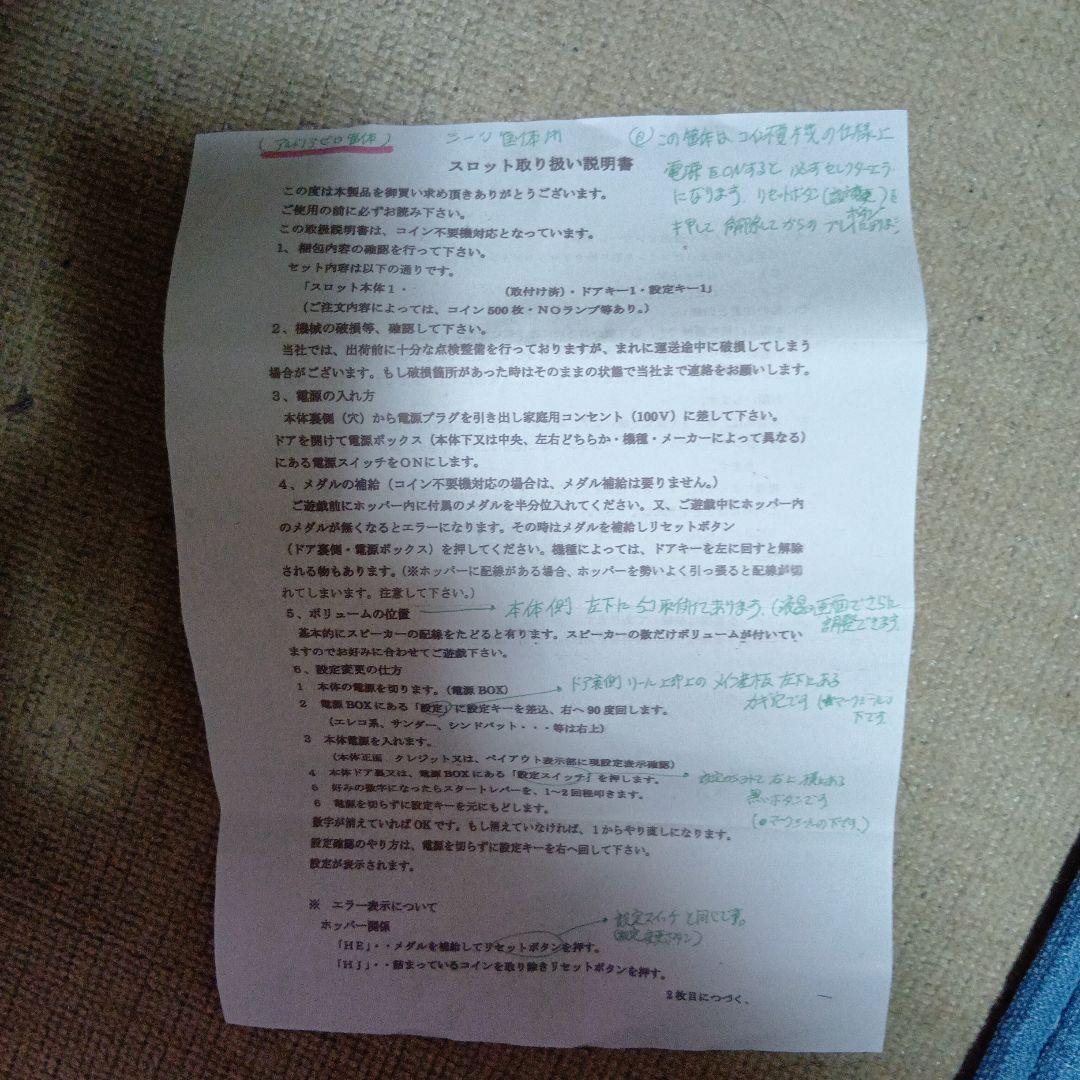 (アルドノアゼロ筐体)
筐体用
スロット取り扱い説明書
この筐体はコイン不要機の仕様上
電源をONすると必ずセレクターエラー
になります。リセットボタン(設定変更ボタン)を
押して解除してからの
この度は本製品を御買い求め頂きありがとうございます。
ご使用の前に必ずお読み下さい。
この取扱説明書は、コイン不要機対応となっています。
1、梱包内容の確認を行って下さい。
セット内容は以下の通りです。
「スロット本体1・ (取付け済)・ドアキー1・設定キー1」
(ご注文内容によっては、コイン500枚・NOランプ等あり。)
2、機械の破損等、確認して下さい。
当社では、出荷前に十分な点検整備を行っておりますが、まれに運送途中に破損してしまう
場合がございます。もし破損箇所があった時はそのままの状態で当社まで連絡をお願いします。
3、電源の入れ方
本体裏側(穴)から電源プラグを引き出し家庭用コンセント(100V)に差して下さい。
ドアを開けて電源ボックス(本体下又は中央、左右どちらか・機種・メーカーによって異なる)
にある電源スイッチをONにします。
4、メダルの補給(コイン不要機対応の場合は、メダル補給は要りません。)
ご遊戯前にホッパー内に付属のメダルを半分位入れてください。又、ご遊戯中にホッパー内
のメダルが無くなるとエラーになります。その時はメダルを補給しリセットボタン
(ドア裏側・電源ボックス)を押してください。機種によっては、ドアキーを左に回すと解除
される物もあります。(※ホッパーに配線がある場合、ホッパーを勢いよく引っ張ると配線が切
れてしまいます。注意して下さい。)
5、ボリュームの位置
本体側 左下に 取付けてあります。(液晶画面でさらに
調整できます。
基本的にスピーカーの配線をたどると有ります。スピーカーの数だけボリュームが付いてい
ますのでお好みに合わせてご遊戯下さい。
6、設定変更の仕方
1 本体の電源を切ります。(電源BOX)
ドア裏側リール上の メイン基板 左下にある
カギ穴です(マークシールの
下です
2 電源BOXにある「設定」に設定キーを差込、右へ90度回します。
(エレコ系、サンダー、シンドバット・・・等は右上)
3 本体電源を入れます。
(本体正面 クレジット又は、ペイアウト表示部に現設定表示確認)
4 本体ドア裏又は、電源BOXにある「設定スイッチ」を押します。
右上 横にある
黒いボタンです
(●マークシールの下です。)
5 好みの数字になったらスタートレバーを、1~2回程叩きます。
6 電源を切らずに設定キーを元にもどします。
数字が消えていればOKです。もし消えていなければ、1からやり直しになります。
設定確認のやり方は、電源を切らずに設定キーを右へ回して下さい。
設定が表示されます。
※ エラー表示について
ホッパー関係
設定スイッチと同じです。
(設定変更ボタン)
「HE」・・メダルを補給してリセットボタンを押す。
「HJ」・・詰まっているコインを取り除きリセットボタンを押す。
2枚目につづく、